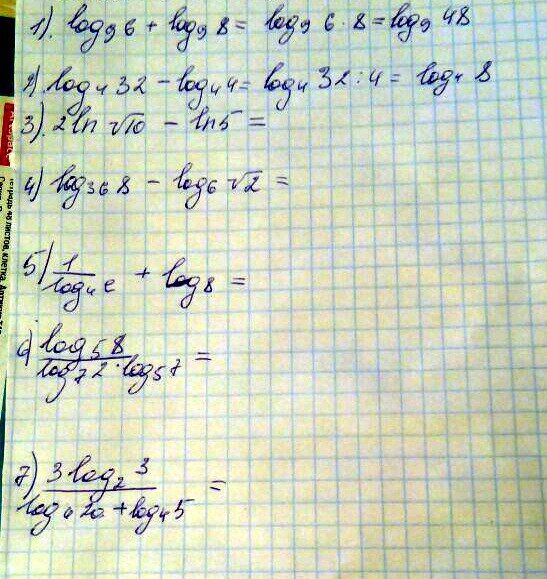 1). log₉ 6 + log₉ 8 = log₉ 6 · 8 = log₉ 48
2). log₄ 32 - log₄ 4 = log₄ 32 : 4 = log₄ 8
3). 2ln √10 - ln5 =
4) log₃₆ 8 - log₆ √2 =
5) 1/log₄e + log₈ =
6) log₅8 / log₇2 · log₅7 =
7) 3log₂ 3 / log₄ + log₄5 =
тетрадь 48 листов, клетка.